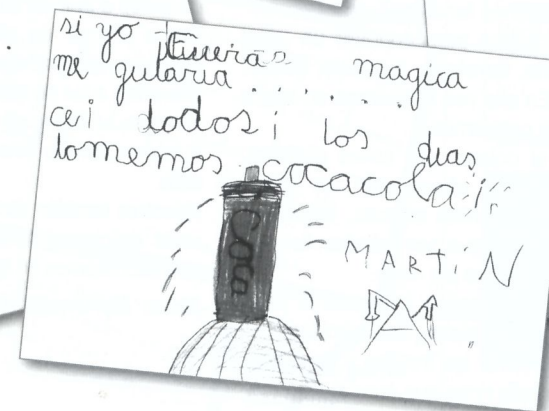 si yo fuera magica
me gutaria . . . . . .
cei todos i los dias
tomemos cocacola i
Coca
MARTiN